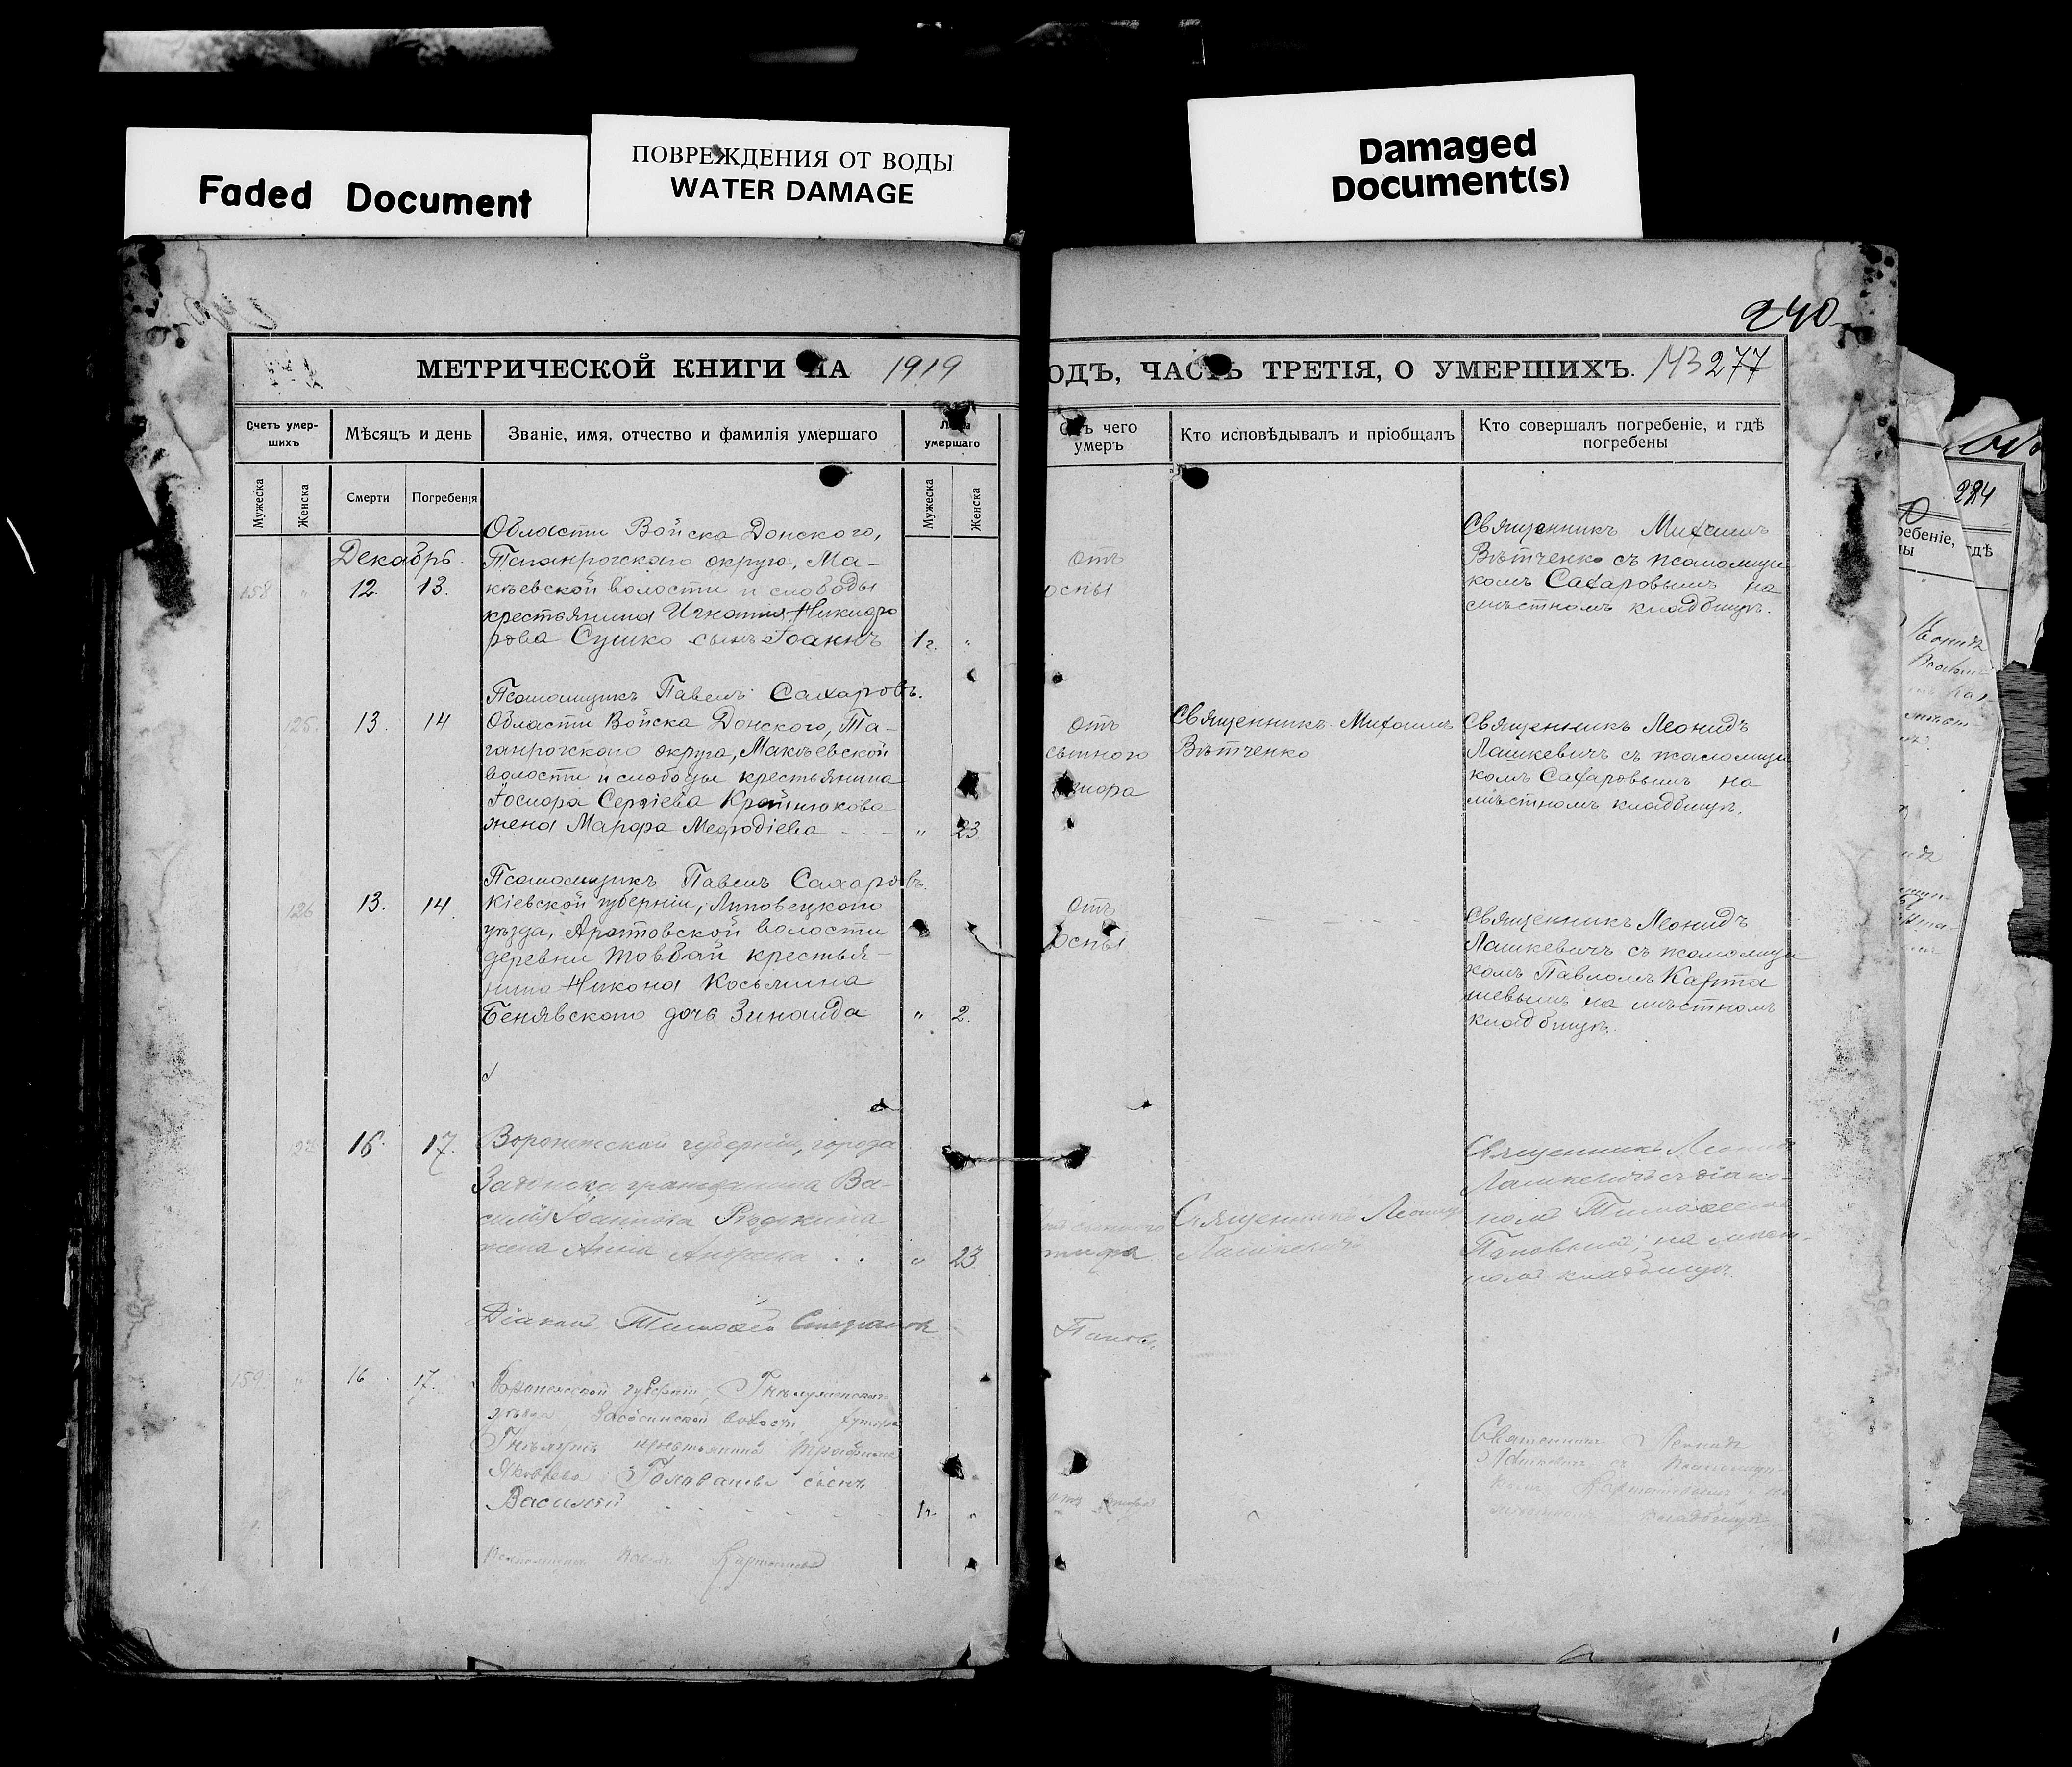 Faded Document
ПОВРЕЖДЕНИЯ ОТ ВОДЫ
WATER DAMAGE
Damaged
Document(s)
240
МЕТРИЧЕСКОЙ КНИГИ НА 1919
ОДЪ, ЧАСТЬ ТРЕТІЯ, О УМЕРШИХЪ. 143 277
Счетъ умер-
шихъ
Мѣсяцъ и день
Званіе, имя, отчество и фамилія умершаго
Лѣта
умершаго
Отъ чего
умеръ
Кто исповѣдывалъ и пріобщалъ
Кто совершалъ погребеніе, и гдѣ
погребены
Мужеска
Женска
Смерти
Погребенія
Мужеска
Женска
Декабрь
158 " 12. 13.
Области Войска Донского,
Таганрогскаго округа, Ма-
кѣевской волости и слободы
крестьянина Игнатія Никифо
рова Сушко сынъ Іоаннъ 1 г. "
Отъ
оспы
Священникъ Михаилъ
Вѣтченко съ псаломщи
комъ Сахаровымъ на
мѣстномъ кладбищѣ.
Псаломщикъ Павелъ Сахаровъ.
125. 13. 14
Области Войска Донского, Та-
ганрогскаго округа, Макѣевской
волости и слободы крестьянина
Сергіева Крайнюкова
жена Марфа Меѳодіева " 23
Отъ
сыпного
Священникъ Михаилъ
Вѣтченко
Священникъ Леонидъ
Лашкевичъ съ псаломщи
комъ Сахаровымъ на
мѣстномъ кладбищѣ.
Псаломщикъ Павелъ Сахаровъ.
126 13. 14.
Кіевской губерніи, Липовецкаго
уѣзда, волости
деревни крестья-
нина Никона Косьмина
Бенявскаго дочь Зинаида " 2.
Отъ
оспы
Священникъ Леонидъ
Лашкевичъ съ псаломщи
комъ Павломъ Карта
шевымъ на мѣстномъ
кладбищѣ.
16. 17.
Воронежской губерніи, города
Задонска гражданина Ва-
силія Іоаннова
жена Анна Андреева " 23
сыпного
тифа
Священникъ Леонидъ
Лашкевичъ
Священникъ Леонидъ
Лашкевичъ съ діако-
номъ Тимоѳеемъ
Поповымъ, на мѣст-
номъ кладбищѣ.
Діаконъ Тимоѳей Стефановъ
Поповъ.
159. " 16. 17.
Воронежской губерніи,
уѣзда, волости, хутора
крестьянина Трофима
Яковлева сынъ
Василій 1 г. "
Священникъ Леонидъ
Лашкевичъ съ псаломщи-
комъ Карташевымъ, на
кладбищѣ
Псаломщикъ Павелъ Карташевъ
224
ребеніе,
гдѣ